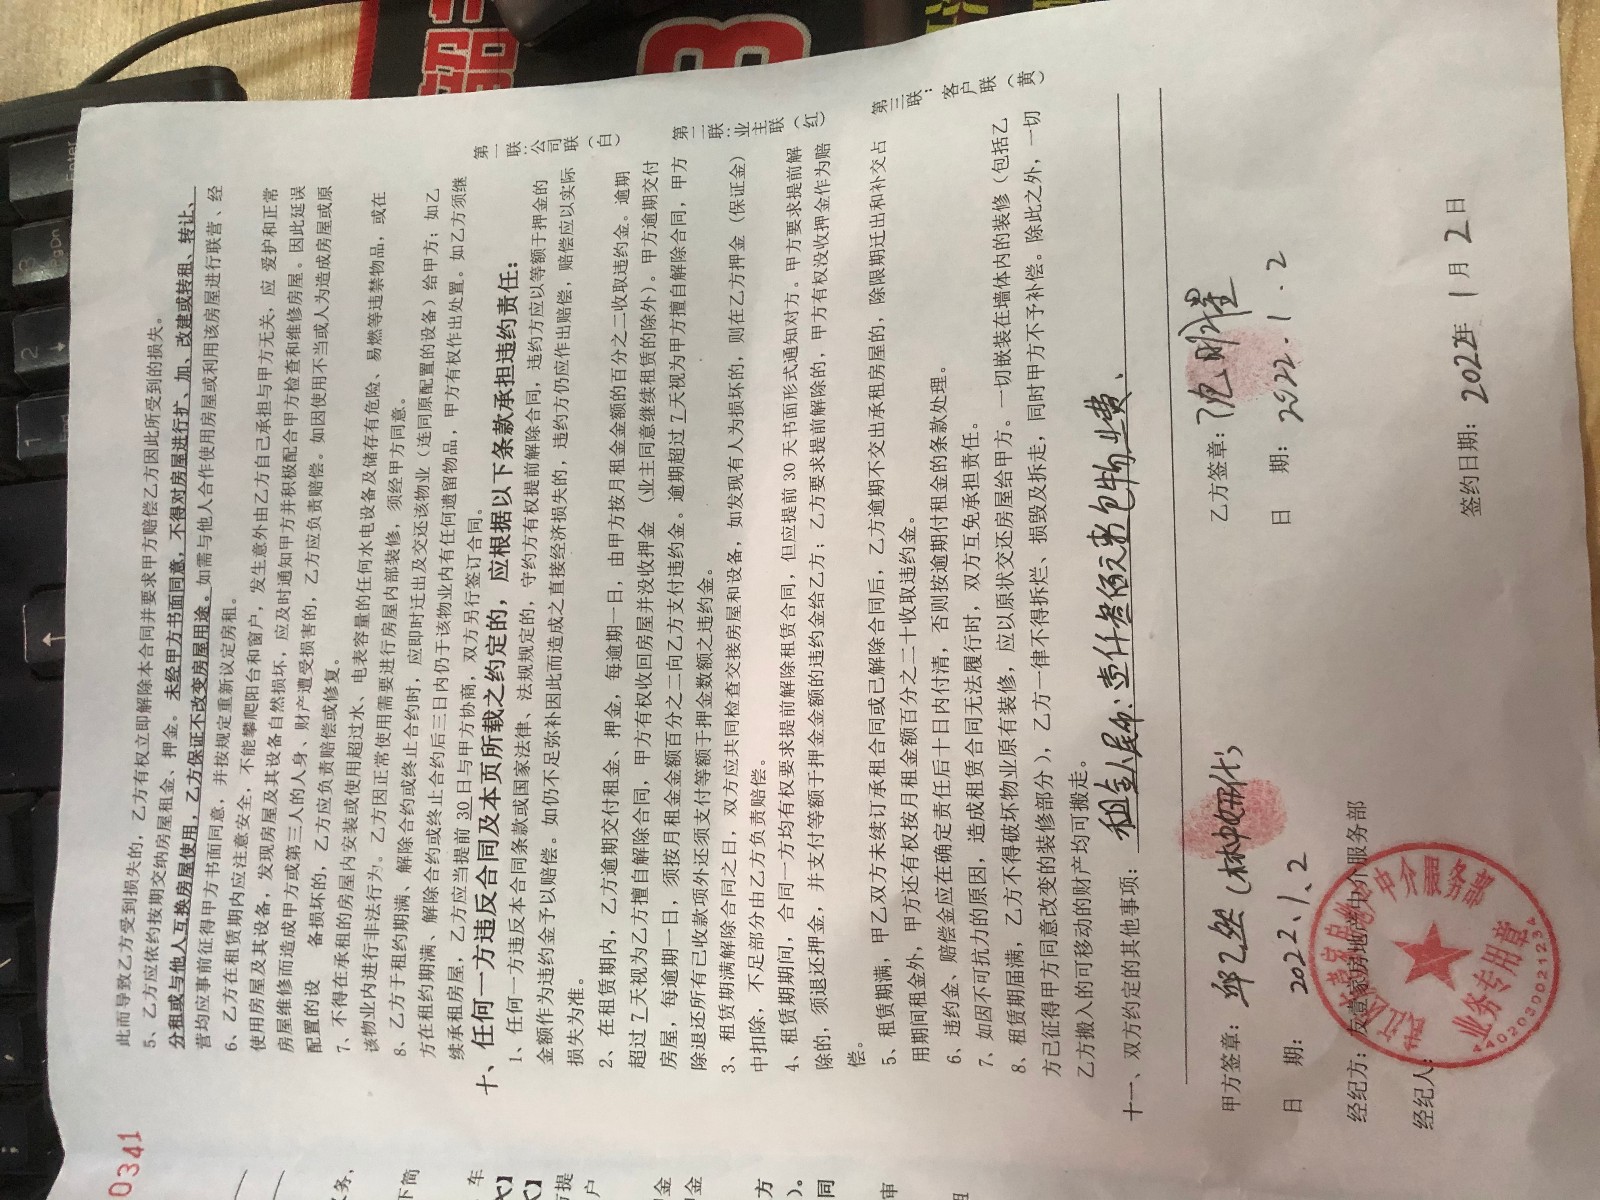 此而导致乙方受到损失的，乙方有权立即解除本合同并要求甲方赔偿乙方因此所受到的损失。
5、乙方应依约按期交纳房屋租金、押金。未经甲方书面同意，不得对房屋进行扩、加、改建或转租、转让、
分租或与他人互换房屋使用，乙方保证不改变房屋用途。如需与他人合作使用房屋或利用该房屋进行联营、经
营均应事前征得甲方书面同意，并按规定重新议定房租。
6、乙方在租赁期内应注意安全，不能攀爬阳台和窗户，发生意外由乙方自己承担与甲方无关，应 爱护和正常
使用房屋及其设备，发现房屋及其设备自然损坏，应及时通知甲方并积极配合甲方检查和维修房屋。因此延误
房屋维修而造成甲方或第三人的人身、财产遭受损害的，乙方应负责赔偿。如因使用不当或人为造成房屋或原
配置的设 备损坏的，乙方应负责赔偿或修复。
7、不得在承租的房屋内安装或使用超过水、电表容量的任何水电设备及储存有危险、易燃等违禁物品，或在
该物业内进行非法行为。乙方因正常使用需要进行房屋内部装修，须经甲方同意。
8、乙方于租约期满、解除合约或终止合约时，应即时迁出及交还该物业（连同原配置的设备）给甲方；如乙
方在租约期满、解除合约或终止合约后三日内仍于该物业内有任何遗留物品，甲方有权作出处置。如乙方须继
续承租房屋，乙方应当提前 30 日与甲方协商，双方另行签订合同。
十、任何一方违反合同及本页所载之约定的，应根据以下条款承担违约责任：
1、任何一方违反本合同条款或国家法律、法规规定的，守约方有权提前解除合同，违约方应以等额于押金的
金额作为违约金予以赔偿。如仍不足弥补因此而造成之直接经济损失的，违约方仍应作出赔偿，赔偿应以实际
损失为准。
2、在租赁期内，乙方逾期交付租金、押金，每逾期一日，由甲方按月租金金额的百分之二收取违约金。逾期
超过 7 天视为乙方擅自解除合同，甲方有权收回房屋并没收押金（业主同意继续租赁的除外）。甲方逾期交付
房屋，每逾期一日，须按月租金金额百分之二向乙方支付违约金。逾期超过 7 天视为甲方擅自解除合同，甲方
除退还所有已收款项外还须支付等额于押金数额之违约金。
3、租赁期满解除合同之日，双方应共同检查交接房屋和设备，如发现有人为损坏的，则在乙方押金（保证金）
中扣除，不足部分由乙方负责赔偿。
4、租赁期期间，合同一方均有权要求提前解除租赁合同，但应提前 30 天书面形式通知对方。甲方要求提前解
除的，须退还押金，并支付等额于押金金额的违约金给乙方；乙方要求提前解除的，甲方有权没收押金作为赔
偿。
5、租赁期满，甲乙双方未续订承租合同或已解除合同后，乙方逾期不交出承租房屋的，除限期迁出和补交占
用期间租金外，甲方还有权按月租金额百分之二十收取违约金。
6、违约金、赔偿金应在确定责任后十日内付清，否则按逾期付租金的条款处理。
7、如因不可抗力的原因，造成租赁合同无法履行时，双方互免承担责任。
8、租赁期届满，乙方不得破坏物业原有装修，应以原状交还房屋给甲方。一切嵌装在墙体内的装修（包括乙
方已征得甲方同意改变的装修部分），乙方一律不得拆烂、损毁及拆走，同时甲方不予补偿。除此之外，一切
乙方搬入的可移动的财产均可搬走。
十一、双方约定的其他事项：
包物业费、
甲方签章：
乙方签章：
日 期： 2022.1.2
日 期： 2022.1.2
经纪方：友壹家房地产中介服务部
签约日期： 2022年 1月 2日
经纪人：
中介服务部
业务专用章
第一联：公司联（白）
第二联：业主联（红）
第三联：客户联（黄）
0341
务,
下简
车
提
户
金
金
方
)。
同
审
Enter
PgDn
3
2
1
End
3